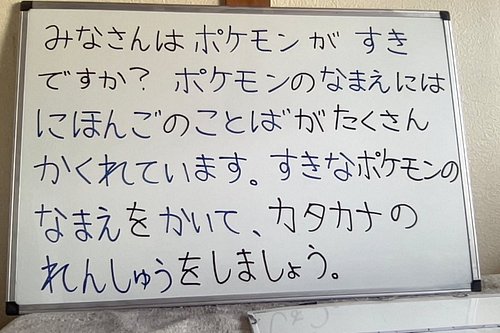 みなさんは ポケモン が すき
ですか? ポケモンのなまえには
にほんごのことばがたくさん
かくれています。すきなポケモンの
なまえをかいて、カタカナの
れんしゅうをしましょう。